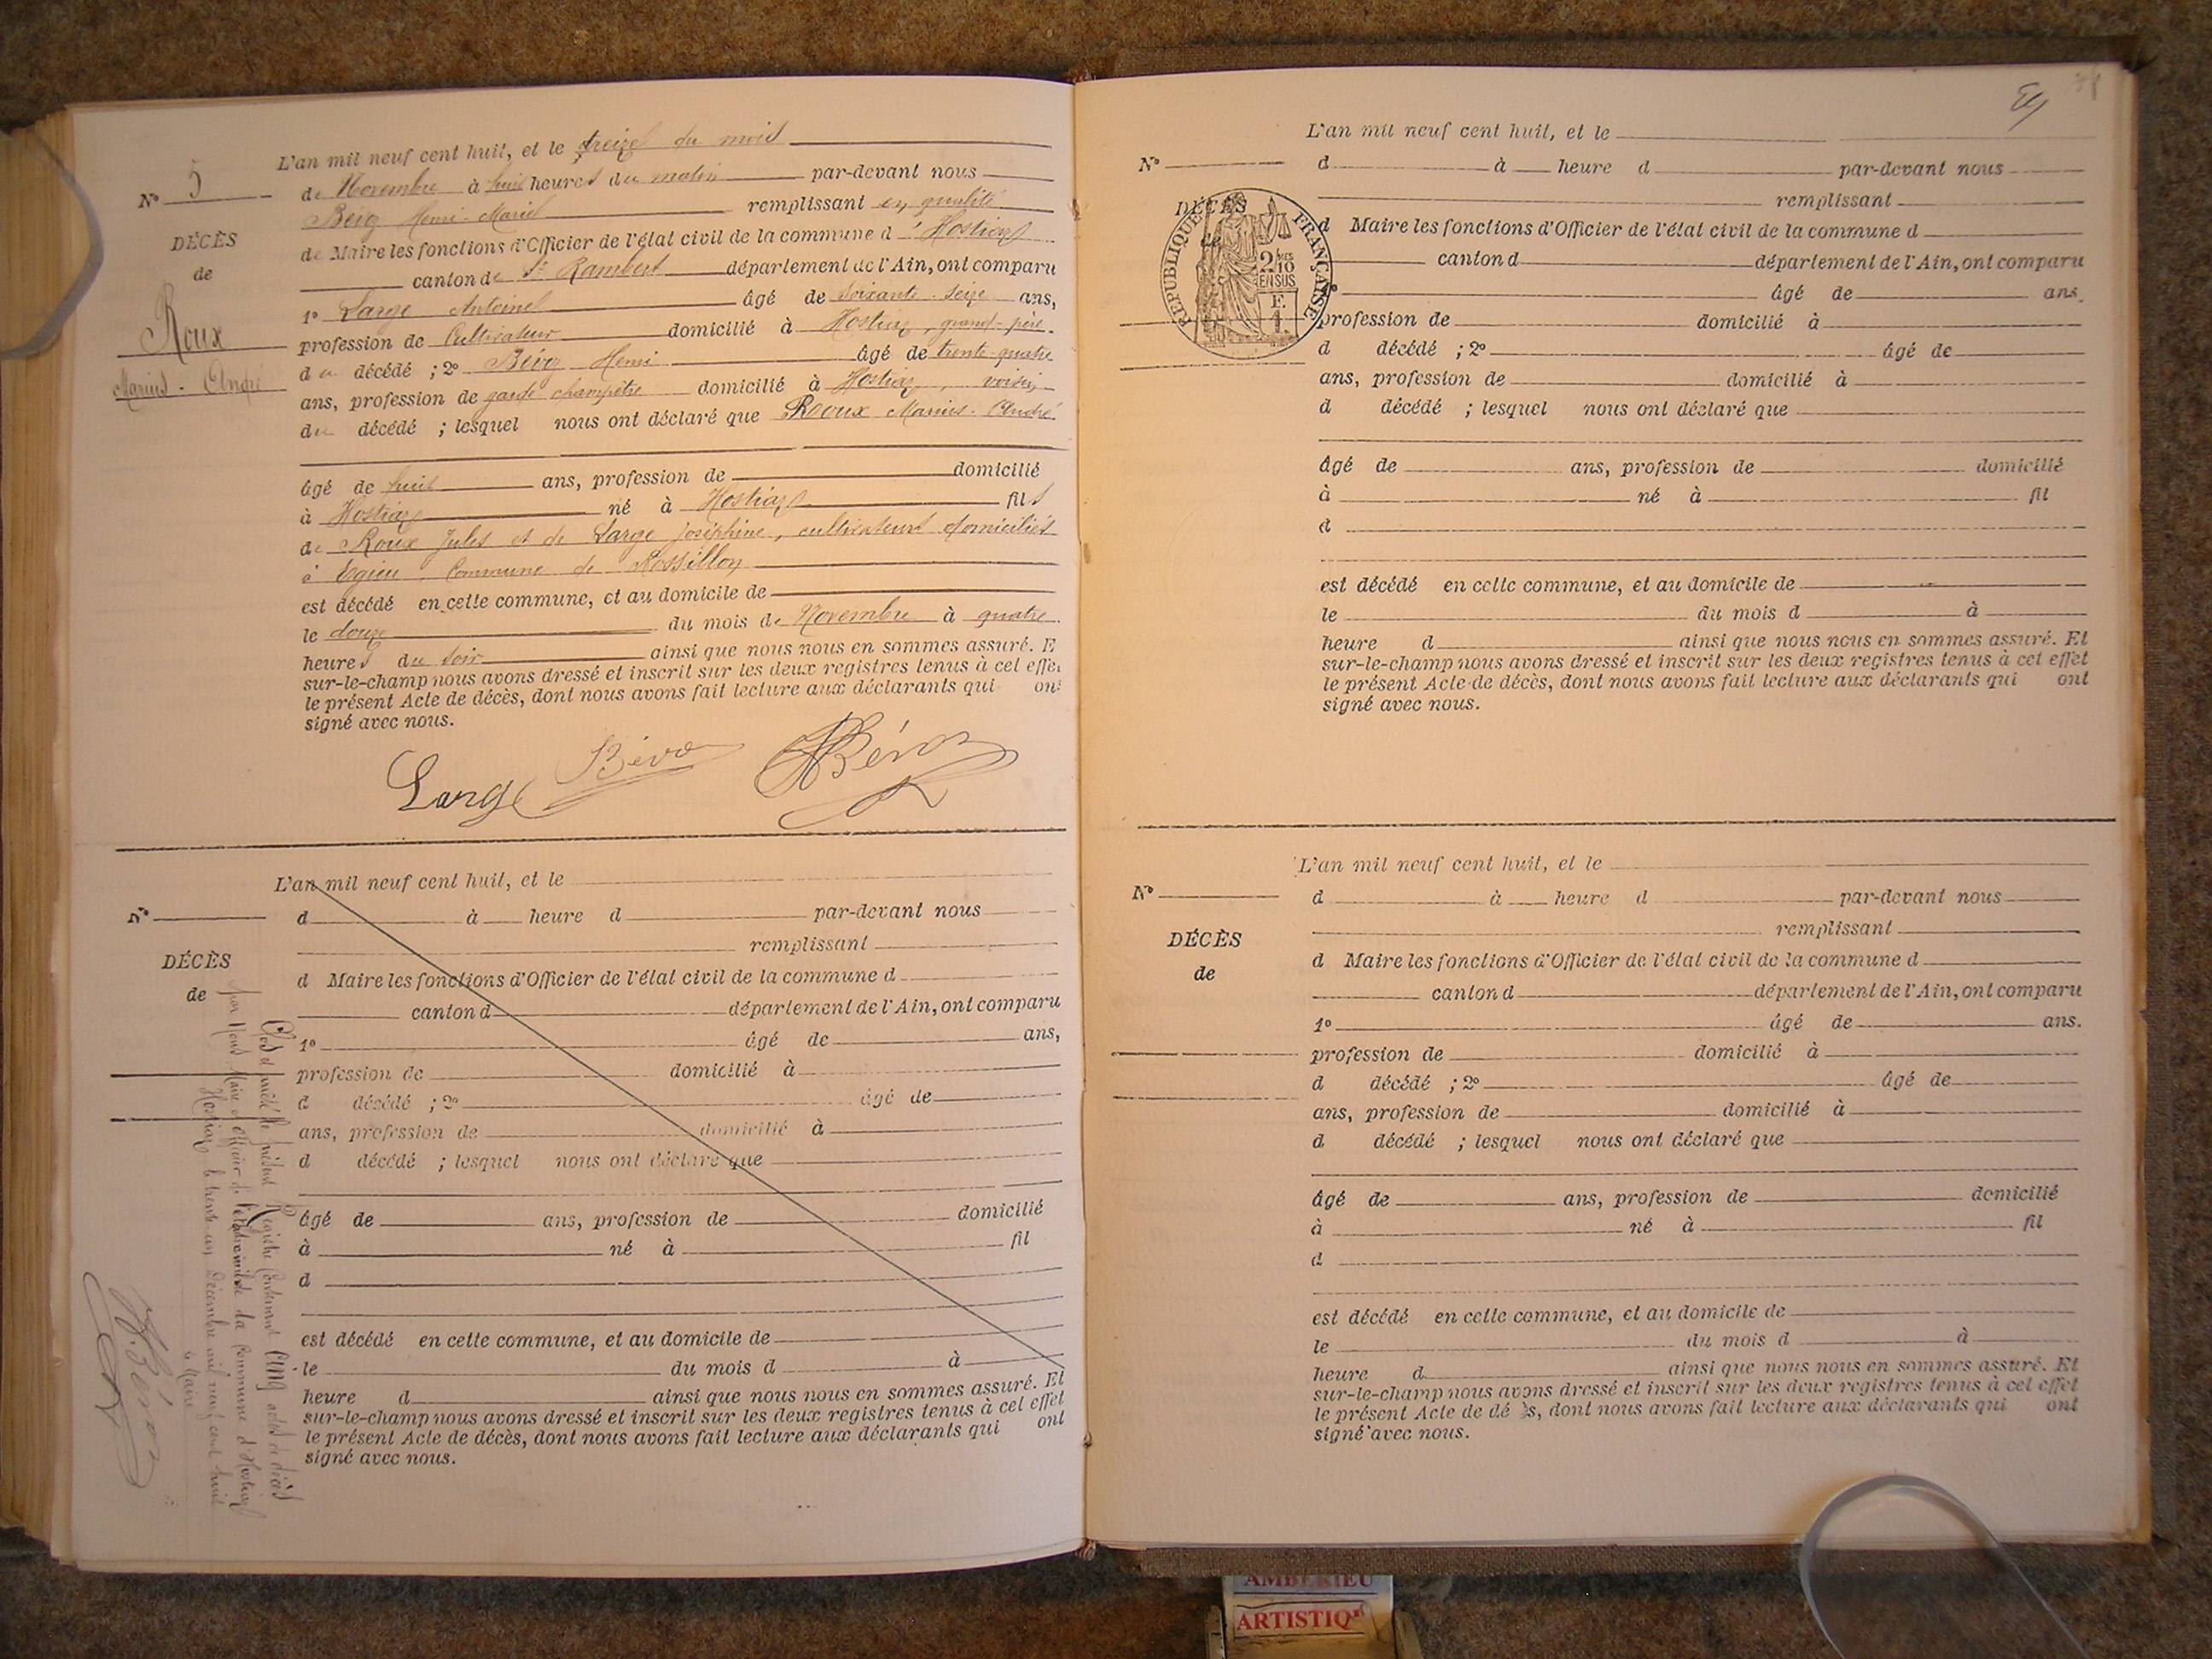 L'an mil neuf cent huit, et le treize du mois
N° 5
de Novembre à huit heures du matin par-devant nous
Béroz Henri-Marie remplissant en qualité
DÉCÈS
de Maire les fonctions d'Officier de l'état civil de la commune d'Hostiaz
de
canton de St Rambert département de l'Ain, ont comparu
1° Large Antoine âgé de soixante-seize ans,
Roux
profession de Cultivateur domicilié à Hostiaz, grand-père
Marius-André
du décédé ; 2° Béroz Henri âgé de trente-quatre
ans, profession de garde champêtre domicilié à Hostiaz, voisin
du décédé ; lesquel nous ont déclaré que Roux Marius-André
âgé de huit ans, profession de domicilié
à Hostiaz né à Hostiaz fils
de Roux Jules et de Large Joséphine, cultivateurs domiciliés
à Egieu, Commune de Rossillon
est décédé en cette commune, et au domicile de
le douze du mois de Novembre à quatre
heures du soir ainsi que nous nous en sommes assuré. E
sur-le-champ nous avons dressé et inscrit sur les deux registres tenus à cet effet
le présent Acte de décès, dont nous avons fait lecture aux déclarants qui ont
signé avec nous.
Large Béroz HBéroz
L'an mil neuf cent huit, et le
N°
d à heure d par-devant nous
remplissant
DÉCÈS
de
d Maire les fonctions d'Officier de l'état civil de la commune d
canton d département de l'Ain, ont comparu
1° âgé de ans,
profession de domicilié à
d décédé ; 2° âgé de
ans, profession de domicilié à
d décédé ; lesquel nous ont déclaré que
âgé de ans, profession de domicilié
à né à fil
d
est décédé en cette commune, et au domicile de
le du mois d à
heure d ainsi que nous nous en sommes assuré. Et
sur-le-champ nous avons dressé et inscrit sur les deux registres tenus à cet effet
le présent Acte de décès, dont nous avons fait lecture aux déclarants qui ont
signé avec nous.
Clos et arrêté le présent Registre Contenant CINQ actes de décès
par Nous Maire et officier de l'état civil de la Commune d'Hostiaz
Hostiaz le trente-un Décembre mil neuf cent huit
le Maire
H.Béroz
L'an mil neuf cent huit, et le
N°
d à heure d par-devant nous
remplissant
DÉCÈS
de
d Maire les fonctions d'Officier de l'état civil de la commune d
canton d département de l'Ain, ont comparu
RÉPUBLIQUE FRANÇAISE
2/10
EN SUS
âgé de ans
profession de domicilié à
d décédé ; 2° âgé de
ans, profession de domicilié à
d décédé ; lesquel nous ont déclaré que
âgé de ans, profession de domicilié
à né à fil
d
est décédé en cette commune, et au domicile de
le du mois d à
heure d ainsi que nous nous en sommes assuré. Et
sur-le-champ nous avons dressé et inscrit sur les deux registres tenus à cet effet
le présent Acte de décès, dont nous avons fait lecture aux déclarants qui ont
signé avec nous.
L'an mil neuf cent huit, et le
N°
d à heure d par-devant nous
remplissant
DÉCÈS
de
d Maire les fonctions d'Officier de l'état civil de la commune d
canton d département de l'Ain, ont comparu
1° âgé de ans.
profession de domicilié à
d décédé ; 2° âgé de
ans, profession de domicilié à
d décédé ; lesquel nous ont déclaré que
âgé de ans, profession de domicilié
à né à fil
d
est décédé en cette commune, et au domicile de
le du mois d à
heure d ainsi que nous nous en sommes assuré. Et
sur-le-champ nous avons dressé et inscrit sur les deux registres tenus à cet effet
le présent Acte de dé s, dont nous avons fait lecture aux déclarants qui ont
signé avec nous.
AMBERIEU
ARTISTIQ